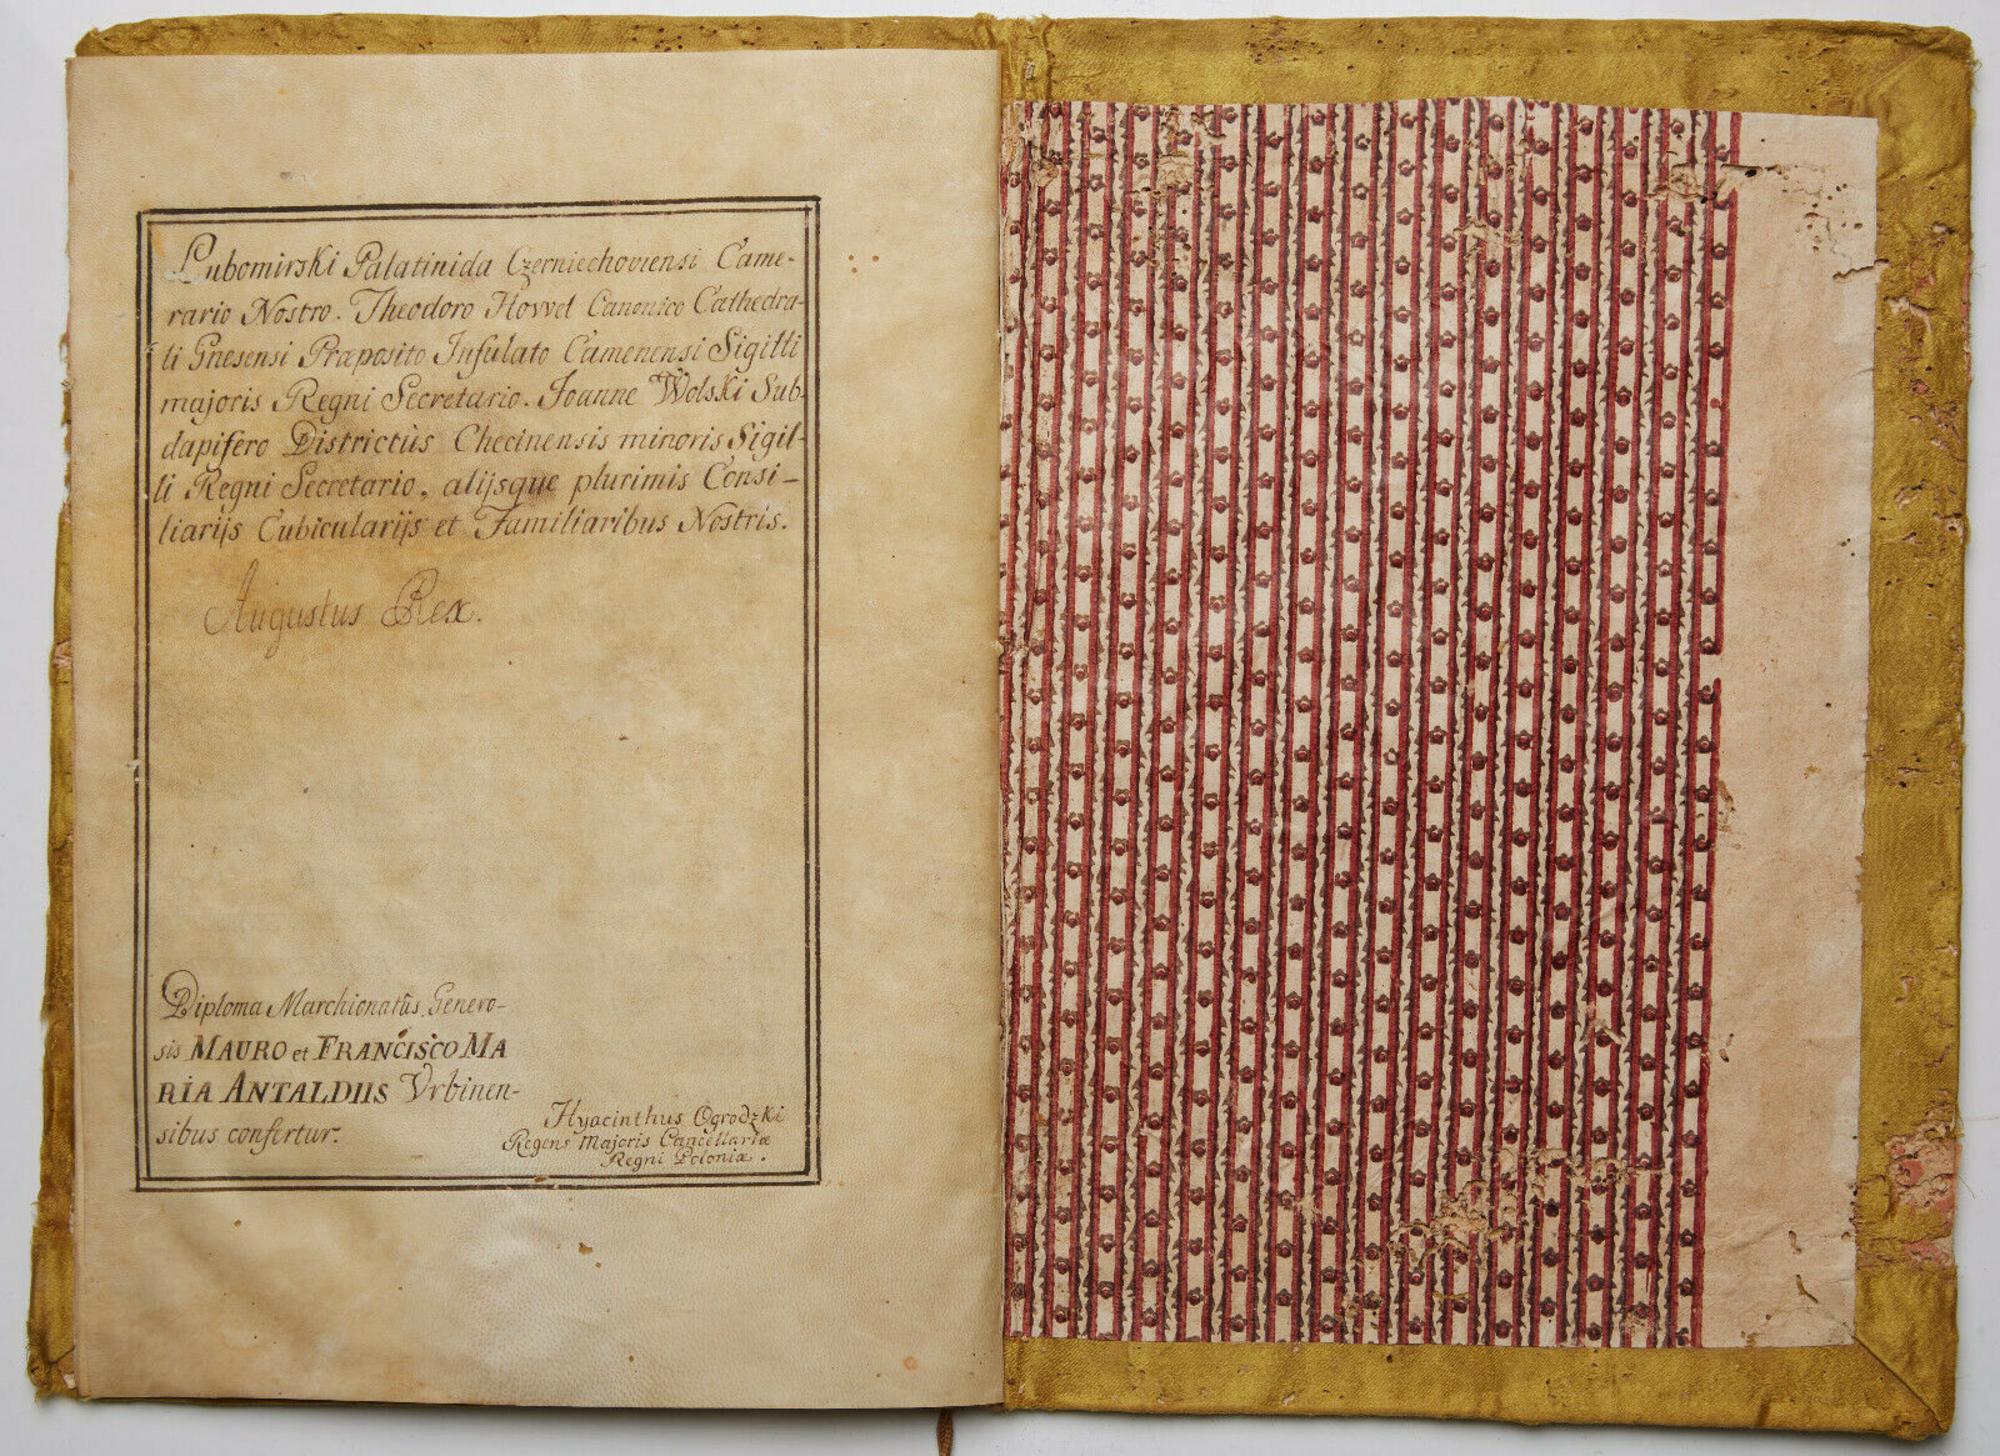 Lubomirski Palatinida Czerniechoviensi Came-
rario Nostro. Theodoro Hovvel Canonico Cathedra-
li Gnesensi Præposito Infulato Camenensi Sigilli
majoris Regni Secretario. Joanne Wolski Sub-
dapifero Districtûs Checinensis minoris Sigil-
li Regni Secretario, alijsque plurimis Consi-
liarijs Cubicularijs et Familiaribus Nostris.
Augustus Rex.
Diploma Marchionatûs Genero-
sis MAURO et FRANCISCO MA
RIA ANTALDIIS Vrbinen-
sibus confertur.
Hyacinthus Ogrodzki
Regens Majoris Cancellariæ
Regni Poloniæ.